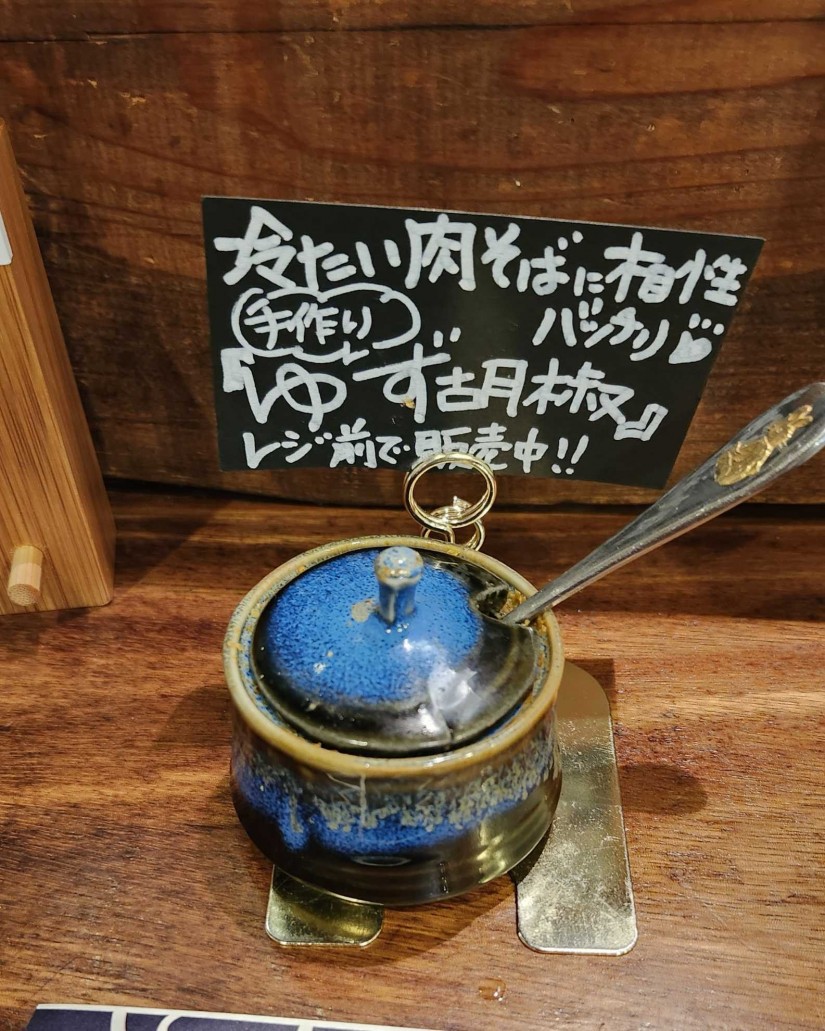 冷たい肉そばに相性
バッチリ
手作り
『ゆず胡椒』
レジ前で販売中!!